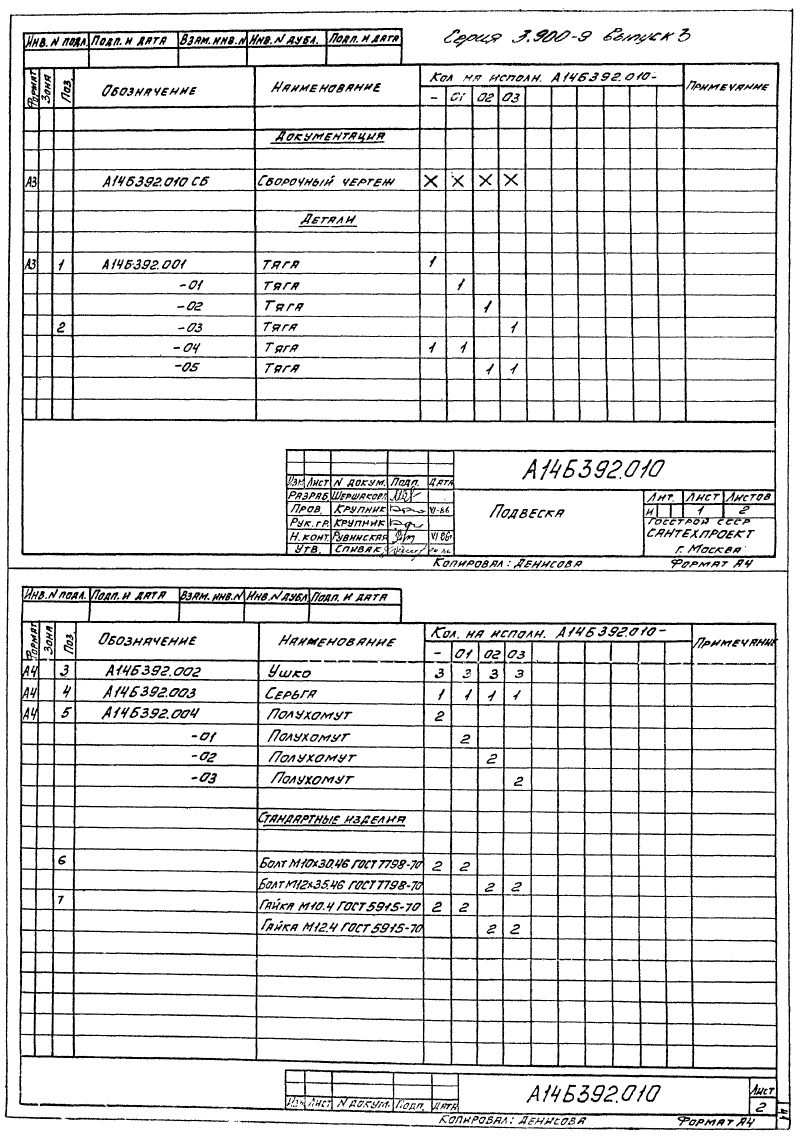 Серия 3.900-9 выпуск 3
Инв. N подл. Подп. и дата Взам. инв. N Инв. N дубл. Подп. и дата
Формат Зона Поз. Обозначение Наименование Кол. на исполн. А14Б392.010- Примечание
- 01 02 03
Документация
А3 А14Б392.010 СБ Сборочный чертеж X X X X
Детали
А3 1 А14Б392.001 Тяга 1
-01 Тяга 1
-02 Тяга 1
2 -03 Тяга 1
-04 Тяга 1 1
-05 Тяга 1 1
А14Б392.010
Изм. Лист N докум. Подп. Дата
Разраб.
Пров. Крупник VI-86
Рук. гр. Крупник
Н. конт. Рувинская VI 86
Утв. Спивак
Подвеска
Лит. Лист Листов
И 1 2
Госстрой СССР
Сантехпроект
г. Москва
Копировал: Денисова Формат А4
Инв. N подл. Подп. и дата Взам. инв. N Инв. N дубл. Подп. и дата
Формат Зона Поз. Обозначение Наименование Кол. на исполн. А14Б392.010- Примечание
- 01 02 03
А4 3 А14Б392.002 Ушко 3 3 3 3
А4 4 А14Б392.003 Серьга 1 1 1 1
А4 5 А14Б392.004 Полухомут 2
-01 Полухомут 2
-02 Полухомут 2
-03 Полухомут 2
Стандартные изделия
6 Болт М10х30.46 ГОСТ 7798-70 2 2
Болт М12х35.46 ГОСТ 7798-70 2 2
7 Гайка М10.4 ГОСТ 5915-70 2 2
Гайка М12.4 ГОСТ 5915-70 2 2
А14Б392.010 Лист
2
Изм. Лист N докум. Подп. Дата
Копировал: Денисова Формат А4